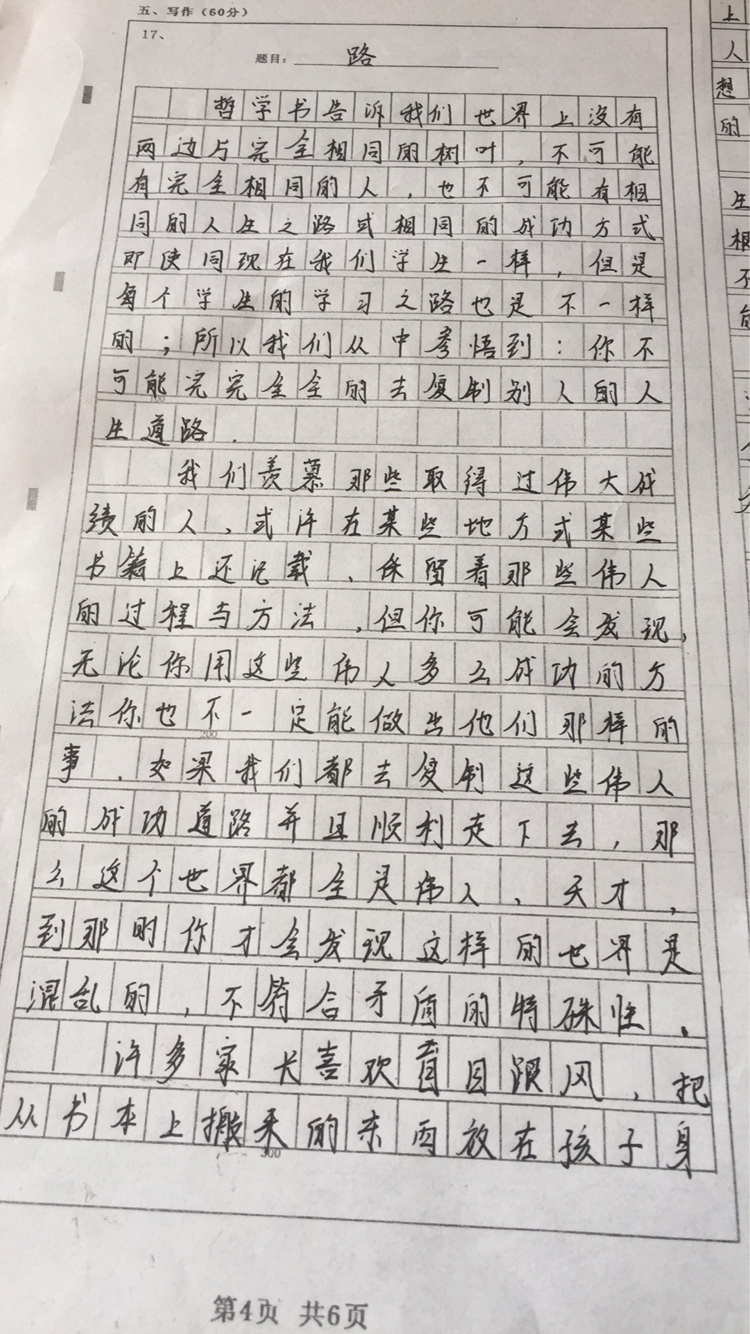 五、写作（60分）
17、
题目：路
哲学书告诉我们世界上没有
两边片完全相同的树叶，不可能
有完全相同的人，也不可能有相
同的人生之路或相同的成功方式
即使同现在我们学生一样，但是
每个学生的学习之路也是不一样
的；所以我们从中参悟到：你不
可能完完全全的去复制别人的人
生道路．
我们羡慕那些取得过伟大成
绩的人、或许在某些地方或某些
书籍上还记载、保留着那些伟人
的过程与方法，但你可能会发现，
无论你用这些伟人多么成功的方
法你也不一定能做出他们那样的
事．如果我们都去复制这些伟人
的成功道路并且顺利走下去，那
么这个世界都全是伟人、天才，
到那时你才会发现这样的世界是
混乱的，不符合矛盾的特殊性．
许多家长喜欢盲目跟风，把
从书本上搬来的东西放在孩子身
200
300
第4页 共6页
上
人
想
的
生
相
不
能